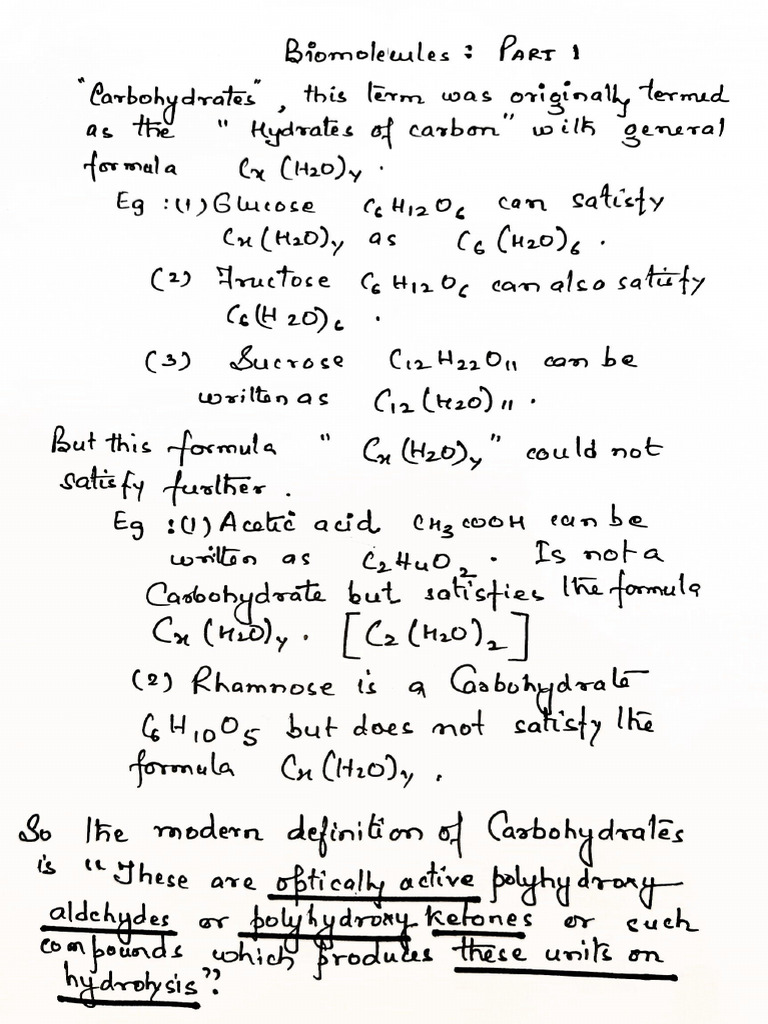 Biomolecules : PART 1
"Carbohydrates", this term was originally termed
as the "Hydrates of carbon" with general
formula Cx (H2O)y .
Eg : (1) Glucose C6 H12O6 can satisfy
Cx (H2O)y as C6 (H2O)6 .
(2) Fructose C6 H12O6 can also satisfy
C6(H2O)6 .
(3) Sucrose C12 H22O11 can be
written as C12 (H2O)11 .
But this formula " Cx (H2O)y " could not
satisfy further .
Eg : (1) Acetic acid CH3 COOH can be
written as C2H4O2 . Is not a
Carbohydrate but satisfies the formula
Cx (H2O)y . [C2 (H2O)2]
(2) Rhamnose is a Carbohydrate
C6H10O5 but does not satisfy the
formula Cx (H2O)y .
So the modern definition of Carbohydrates
is "These are optically active polyhydroxy
aldehydes or polyhydroxy ketones or such
compounds which produces these units on
hydrolysis".